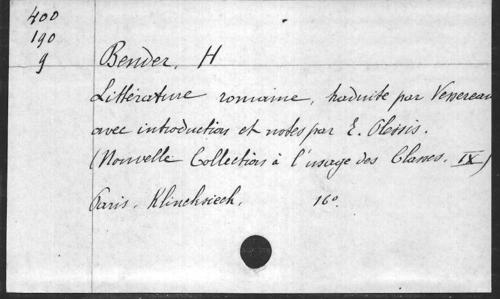 400
190
9
Bender, H
Littérature romaine, traduite par Vessereau
avec introduction et notes par E. Plessis.
(Nouvelle Collection à l'usage des Classes. IX)
Paris. Klincksieck. 16º.